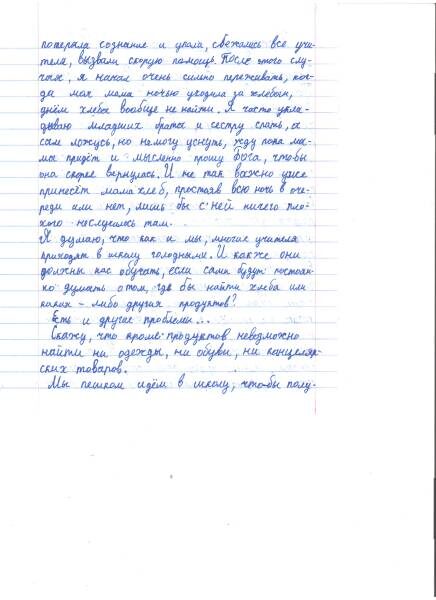 потеряла сознание и упала, сбежались все учи-
теля, вызвали скорую помощь. После этого слу-
чая, я начал очень сильно переживать, ког-
да моя мама ночью уходила за хлебом,
днём хлеба вообще не найти. Я часто укла-
дываю младших брата и сестру спать, а
сам ложусь, но не могу уснуть, жду пока ма-
ма придёт и мысленно прошу Бога, чтобы
она скорее вернулась. И не так важно уже
принесёт мама хлеб, простояв всю ночь в оче-
реди или нет, лишь бы с ней ничего пло-
хого не случилось там.
Я думаю, что как и мы, многие учителя
приходят в школу голодными. И как же они
должны нас обучать, если сами будут постоян-
но думать о том, где бы найти хлеба или
каких-либо других продуктов?
Есть и другие проблемы...
Скажу, что кроме продуктов невозможно
найти ни одежды, ни обуви, ни канцеляр-
ских товаров.
Мы пешком идём в школу, чтобы полу-